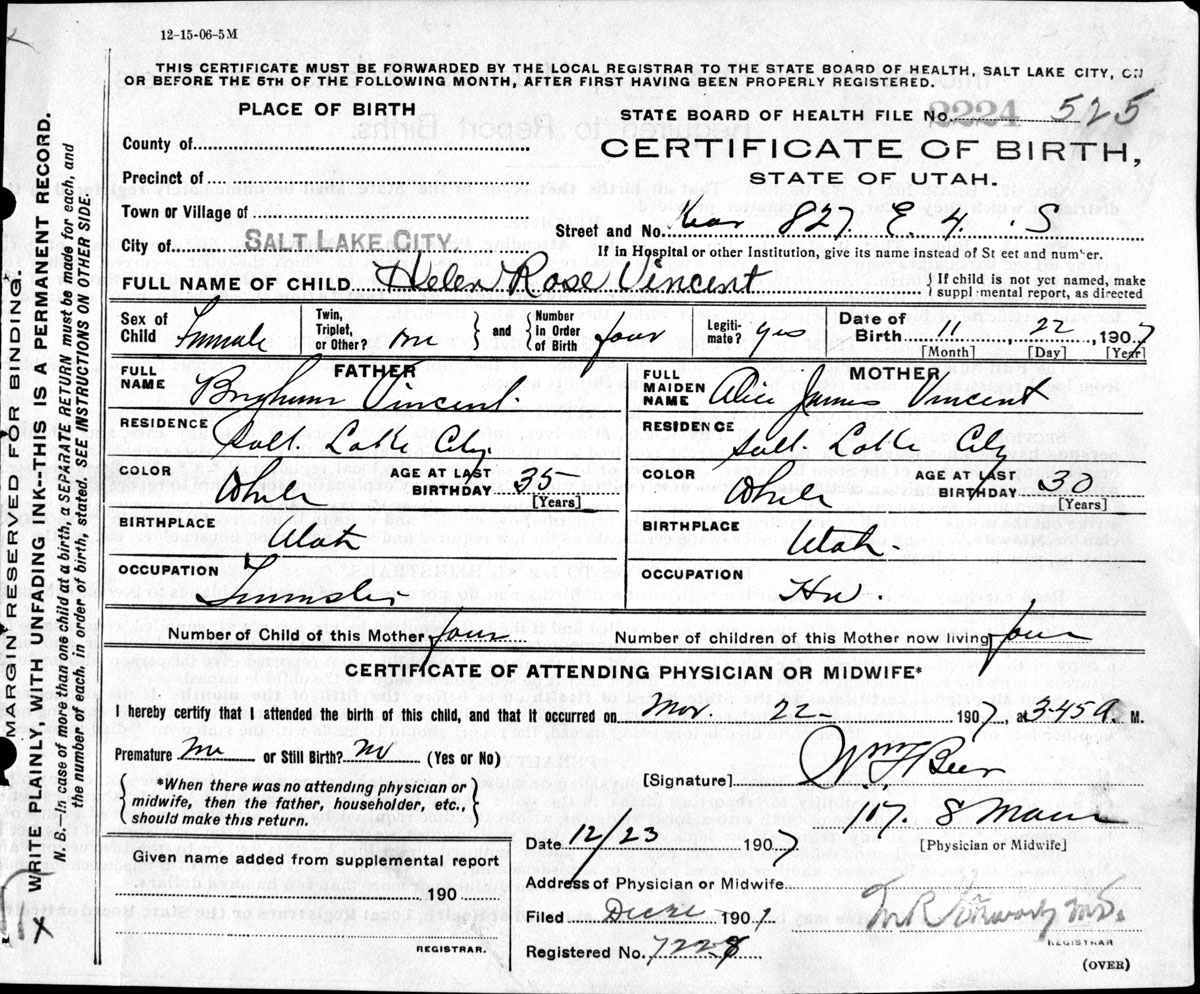 12-15-06-5M
THIS CERTIFICATE MUST BE FORWARDED BY THE LOCAL REGISTRAR TO THE STATE BOARD OF HEALTH, SALT LAKE CITY, ON
OR BEFORE THE 5TH OF THE FOLLOWING MONTH, AFTER FIRST HAVING BEEN PROPERLY REGISTERED.
MARGIN RESERVED FOR BINDING.
WRITE PLAINLY, WITH UNFADING INK--THIS IS A PERMANENT RECORD.
N. B.—In case of more than one child at a birth, a SEPARATE RETURN must be made for each, and
the number of each, in order of birth, stated. SEE INSTRUCTIONS ON OTHER SIDE.
PLACE OF BIRTH
County of
Precinct of
Town or Village of
City of SALT LAKE CITY
STATE BOARD OF HEALTH FILE No. 2224 525
CERTIFICATE OF BIRTH,
STATE OF UTAH.
Street and No. 827 E 4 S
If in Hospital or other Institution, give its name instead of St eet and number.
FULL NAME OF CHILD Helen Rose Vincent
If child is not yet named, make
suppl mental report, as directed
Sex of Child Female Twin, Triplet, or Other? and Number in Order of Birth four Legiti-mate? yes Date of Birth 11 22 1907
[Month] [Day] [Year]
FATHER
FULL NAME Brigham Vincent
RESIDENCE Salt Lake City
COLOR White AGE AT LAST BIRTHDAY 35
[Years]
BIRTHPLACE Utah
OCCUPATION Teamster
MOTHER
FULL MAIDEN NAME Alice James Vincent
RESIDENCE Salt Lake City
COLOR White AGE AT LAST BIRTHDAY 30
[Years]
BIRTHPLACE Utah
OCCUPATION Hw.
Number of Child of this Mother four Number of children of this Mother now living four
CERTIFICATE OF ATTENDING PHYSICIAN OR MIDWIFE*
I hereby certify that I attended the birth of this child, and that it occurred on Nov. 22 1907, at 3.45 a M.
Premature No or Still Birth? No (Yes or No)
*When there was no attending physician or
midwife, then the father, householder, etc.,
should make this return.
Given name added from supplemental report
190
REGISTRAR.
[Signature] Wm F Beer
117. S Main
[Physician or Midwife]
Date 12/23 1907
Address of Physician or Midwife
Filed 190
Registered No. 7228
REGISTRAR
(OVER)